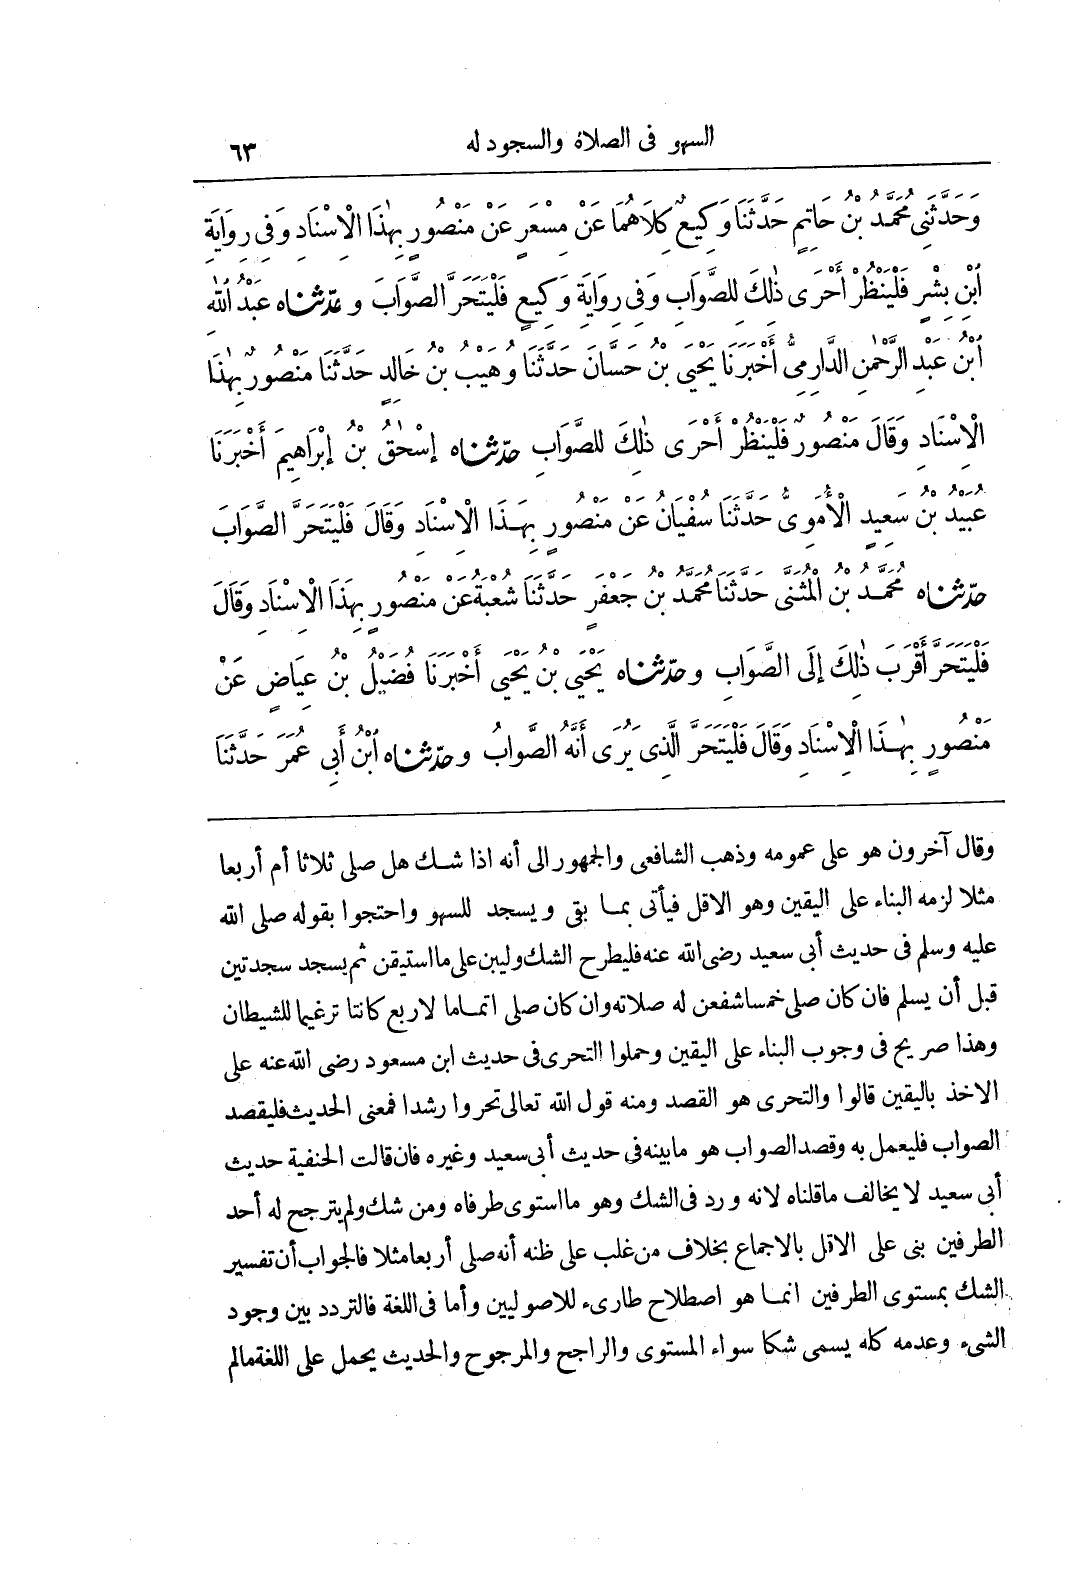 السهو فى الصلاة والسجود له ٦٣
وَحَدَّثَنِى مُحَمَّدُ بْنُ حَاتِمٍ حَدَّثَنَا وَكِيعٌ كِلَاهُمَا عَنْ مِسْعَرٍ عَنْ مَنْصُورٍ بِهٰذَا الْاِسْنَادِ وَفِى رِوَايَةِ
ابْنِ بِشْرٍ فَلْيَنْظُرْ أَحْرَى ذٰلِكَ لِلصَّوَابِ وَفِى رِوَايَةِ وَكِيعٍ فَلْيَتَحَرَّ الصَّوَابَ و حدّثناه عَبْدُ اللّٰهِ
ابْنُ عَبْدِ الرَّحْمٰنِ الدَّارِمِىُّ أَخْبَرَنَا يَحْيَى بْنُ حَسَّانَ حَدَّثَنَا وُهَيْبُ بْنُ خَالِدٍ حَدَّثَنَا مَنْصُورٌ بِهٰذَا
الْاِسْنَادِ وَقَالَ مَنْصُورٌ فَلْيَنْظُرْ أَحْرَى ذٰلِكَ لِلصَّوَابِ حدّثناه إِسْحٰقُ بْنُ إِبْرَاهِيمَ أَخْبَرَنَا
عُبَيْدُ بْنُ سَعِيدٍ الْأُمَوِىُّ حَدَّثَنَا سُفْيَانُ عَنْ مَنْصُورٍ بِهَـذَا الْاِسْنَادِ وَقَالَ فَلْيَتَحَرَّ الصَّوَابَ
حدّثناه مُحَمَّدُ بْنُ الْمُثَنَّى حَدَّثَنَا مُحَمَّدُ بْنُ جَعْفَرٍ حَدَّثَنَا شُعْبَةُ عَنْ مَنْصُورٍ بِهَذَا الْاِسْنَادِ وَقَالَ
فَلْيَتَحَرَّ أَقْرَبَ ذٰلِكَ إِلَى الصَّوَابِ و حدّثناه يَحْيَى بْنُ يَحْيَى أَخْبَرَنَا فُضَيْلُ بْنُ عِيَاضٍ عَنْ
مَنْصُورٍ بِهٰـذَا الْاِسْنَادِ وَقَالَ فَلْيَتَحَرَّ الَّذِى يُرَى أَنَّهُ الصَّوَابُ و حدّثناه ابْنُ أَبِى عُمَرَ حَدَّثَنَا
وقال آخرون هو على عمومه وذهب الشافعى والجمهور الى أنه اذا شك هل صلى ثلاثا أم أربعا
مثلا لزمه البناء على اليقين وهو الاقل فيأتى بما بقى ويسجد للسهو واحتجوا بقوله صلى الله
عليه وسلم فى حديث أبى سعيد رضى الله عنه فليطرح الشك وليبن على ما استيقن ثم يسجد سجدتين
قبل أن يسلم فان كان صلى خمسا شفعن له صلاته وان كان صلى اتماما لاربع كانتا ترغيما للشيطان
وهذا صريح فى وجوب البناء على اليقين وحملوا التحرى فى حديث ابن مسعود رضى الله عنه على
الاخذ باليقين قالوا والتحرى هو القصد ومنه قول الله تعالى تحروا رشدا فمعنى الحديث فليقصد
الصواب فليعمل به وقصد الصواب هو ما بينه فى حديث أبى سعيد وغيره فان قالت الحنفية حديث
أبى سعيد لا يخالف ما قلناه لانه ورد فى الشك وهو ما استوى طرفاه ومن شك ولم يترجح له أحد
الطرفين بنى على الاقل بالاجماع بخلاف من غلب على ظنه أنه صلى أربعا مثلا فالجواب أن تفسير
الشك بمستوى الطرفين انما هو اصطلاح طارىء للاصوليين وأما فى اللغة فالتردد بين وجود
الشىء وعدمه كله يسمى شكا سواء المستوى والراجح والمرجوح والحديث يحمل على اللغة مالم